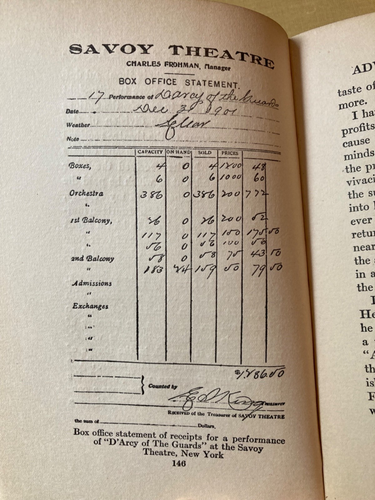 SAVOY THEATRE
CHARLES FROHMAN, Manager
BOX OFFICE STATEMENT.
17 Performance of D'arcy of the Guards
Date Dec 31 1901
Weather Clear
Note
CAPACITY ON HAND SOLD PRICES
Boxes, 4 0 4 1200 48
" 6 0 6 1000 60
Orchestra 386 0 386 200 772
"
1st Balcony, 26 0 26 200 52
" 117 0 117 150 175 50
" 56 0 56 100 56
2nd Balcony 58 0 58 75 43 50
" 183 24 159 50 79 50
Admissions
"
Exchanges
"
"
"
"
1,286.50
Counted by
RECEIVED of the Treasurer of SAVOY THEATRE
the sum of Dollars,
Box office statement of receipts for a performance
of "D'Arcy of The Guards" at the Savoy
Theatre, New York
146
ADV
taste of
more.
I ha
profits
cause
minds
the pr
vivaci
the su
into
ever
retur
near
the
in a
the
He
a
"A
th
is
F
w